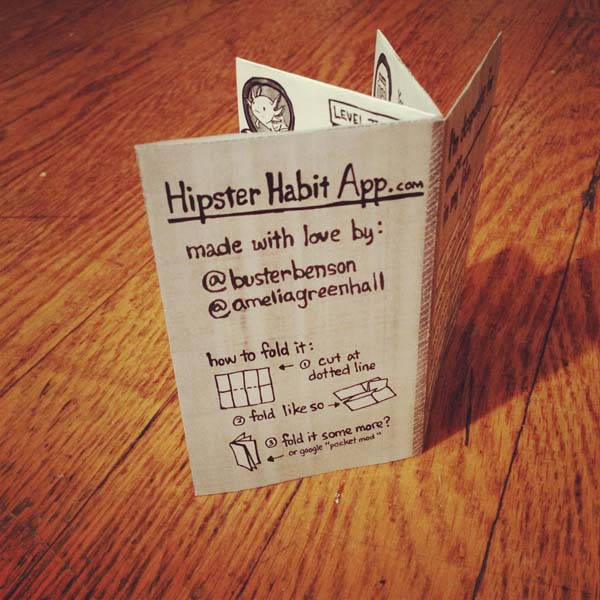 LEVEL
Hipster Habit App.com
made with love by:
@busterbenson
@ameliagreenhall
how to fold it:
① cut at
dotted line
② fold like so
③ fold it some more?
or google "pocket mod"